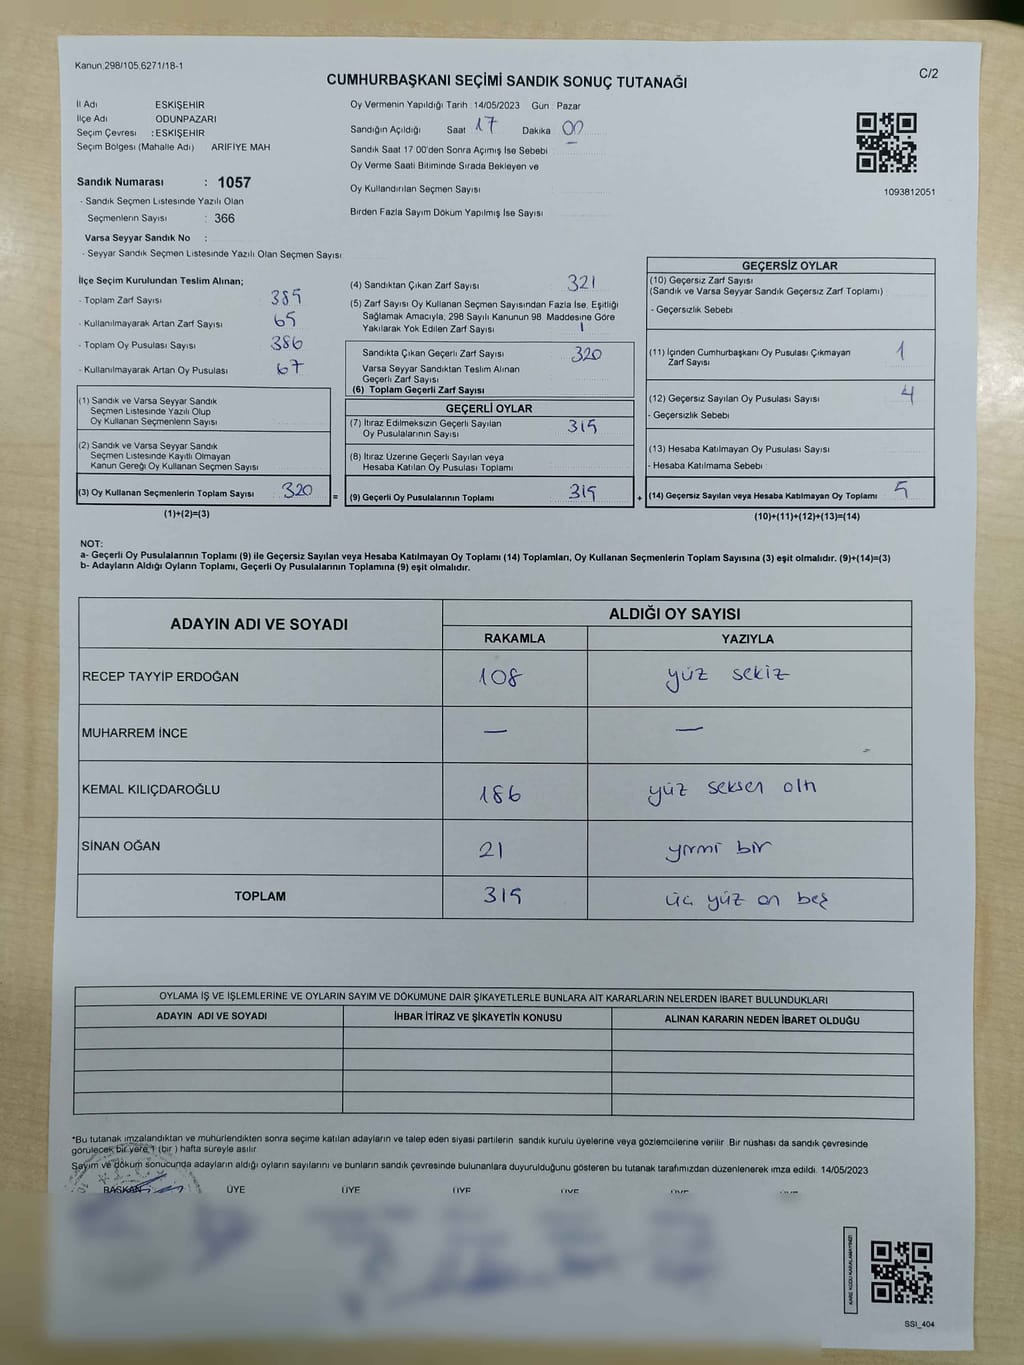 Kanun,298/105,6271/18-1
C/2
CUMHURBAŞKANI SEÇİMİ SANDIK SONUÇ TUTANAĞI
İl Adı ESKİŞEHİR
İlçe Adı ODUNPAZARI
Seçim Çevresi : ESKİŞEHİR
Seçim Bölgesi (Mahalle Adı) ARİFİYE MAH
Sandık Numarası : 1057
- Sandık Seçmen Listesinde Yazılı Olan
Seçmenlerin Sayısı : 366
Varsa Seyyar Sandık No :
- Seyyar Sandık Seçmen Listesinde Yazılı Olan Seçmen Sayısı
Oy Vermenin Yapıldığı Tarih 14/05/2023 Gün Pazar
Sandığın Açıldığı Saat 17 Dakika 00
Sandık Saat 17 00'den Sonra Açımış İse Sebebi -
Oy Verme Saati Bitiminde Sırada Bekleyen ve
Oy Kullandırılan Seçmen Sayısı
Birden Fazla Sayım Döküm Yapılmış İse Sayısı
1093812051
İlçe Seçim Kurulundan Teslim Alınan;
- Toplam Zarf Sayısı 385
- Kullanılmayarak Artan Zarf Sayısı 65
- Toplam Oy Pusulası Sayısı 386
- Kullanılmayarak Artan Oy Pusulası 67
(1) Sandık ve Varsa Seyyar Sandık
Seçmen Listesinde Yazılı Olup
Oy Kullanan Seçmenlerin Sayısı
(2) Sandık ve Varsa Seyyar Sandık
Seçmen Listesinde Kayıtlı Olmayan
Kanun Gereği Oy Kullanan Seçmen Sayısı
(3) Oy Kullanan Seçmenlerin Toplam Sayısı 320
(1)+(2)=(3)
=
(4) Sandıktan Çıkan Zarf Sayısı 321
(5) Zarf Sayısı Oy Kullanan Seçmen Sayısından Fazla İse, Eşitliği
Sağlamak Amacıyla, 298 Sayılı Kanunun 98. Maddesine Göre
Yakılarak Yok Edilen Zarf Sayısı 1
Sandıkta Çıkan Geçerli Zarf Sayısı 320
Varsa Seyyar Sandıktan Teslim Alınan
Geçerli Zarf Sayısı
(6) Toplam Geçerli Zarf Sayısı
GEÇERLİ OYLAR
(7) İtiraz Edilmeksizin Geçerli Sayılan
Oy Pusulalarının Sayısı 315
(8) İtiraz Üzerine Geçerli Sayılan veya
Hesaba Katılan Oy Pusulası Toplamı
(9) Geçerli Oy Pusulalarının Toplamı 315
+
GEÇERSİZ OYLAR
(10) Geçersiz Zarf Sayısı
(Sandık ve Varsa Seyyar Sandık Geçersiz Zarf Toplamı)
- Geçersizlik Sebebi
(11) İçinden Cumhurbaşkanı Oy Pusulası Çıkmayan
Zarf Sayısı 1
(12) Geçersiz Sayılan Oy Pusulası Sayısı 4
- Geçersizlik Sebebi
(13) Hesaba Katılmayan Oy Pusulası Sayısı
- Hesaba Katılmama Sebebi
(14) Geçersiz Sayılan veya Hesaba Katılmayan Oy Toplamı 5
(10)+(11)+(12)+(13)=(14)
NOT:
a- Geçerli Oy Pusulalarının Toplamı (9) ile Geçersiz Sayılan veya Hesaba Katılmayan Oy Toplamı (14) Toplamları, Oy Kullanan Seçmenlerin Toplam Sayısına (3) eşit olmalıdır. (9)+(14)=(3)
b- Adayların Aldığı Oyların Toplamı, Geçerli Oy Pusulalarının Toplamına (9) eşit olmalıdır.
ADAYIN ADI VE SOYADI
ALDIĞI OY SAYISI
RAKAMLA YAZIYLA
RECEP TAYYİP ERDOĞAN 108 yüz sekiz
MUHARREM İNCE — —
KEMAL KILIÇDAROĞLU 186 yüz seksen altı
SİNAN OĞAN 21 yirmi bir
TOPLAM 315 üç yüz on beş
OYLAMA İŞ VE İŞLEMLERİNE VE OYLARIN SAYIM VE DÖKÜMÜNE DAİR ŞİKAYETLERLE BUNLARA AİT KARARLARIN NELERDEN İBARET BULUNDUKLARI
ADAYIN ADI VE SOYADI İHBAR İTİRAZ VE ŞİKAYETİN KONUSU ALINAN KARARIN NEDEN İBARET OLDUĞU
*Bu tutanak imzalandıktan ve mühürlendikten sonra seçime katılan adayların ve talep eden siyasi partilerin sandık kurulu üyelerine veya gözlemcilerine verilir Bir nüshası da sandık çevresinde
görülecek bir yere 1 (bir ) hafta süreyle asılır
Sayım ve döküm sonucunda adayların aldığı oyların sayılarını ve bunların sandık çevresinde bulunanlara duyurulduğunu gösteren bu tutanak tarafımızdan düzenlenerek imza edildi. 14/05/2023
BAŞKAN ÜYE ÜYE ÜYE ÜYE ÜYE ÜYE
KARE KODU KARALAMAYINIZ!
SSI_404